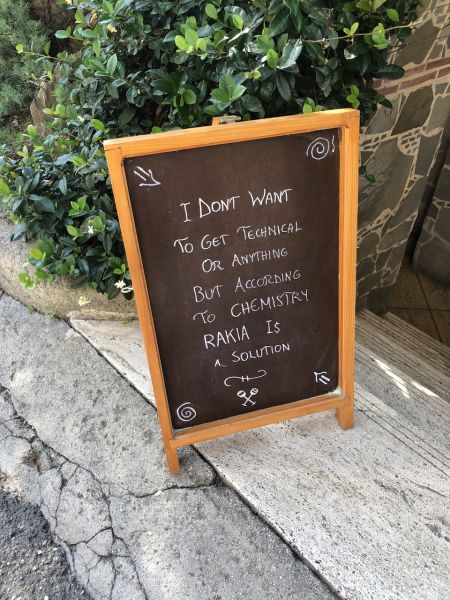 I DONT WANT
TO GET TECHNICAL
OR ANYTHING
BUT ACCORDING
TO CHEMISTRY
RAKIA IS
A SOLUTION